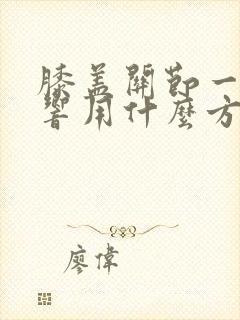 膝盖關節一
響用什麼方
廖偉